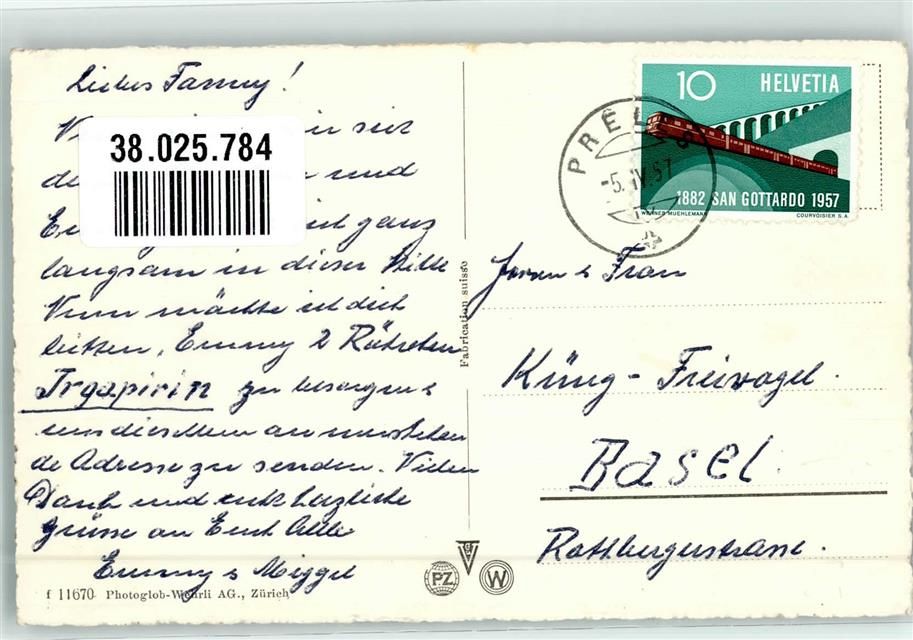 Liebes Fanny!
38.025.784
in seit
und
ganz
langsam in dieser Stille
Nun möchte ich dich
bitten, Emmy 2 Röhrchen
Irgapirin zu besorgen &
uns dieselben an
de Adresse zu senden. Vielen
Dank und recht herzliche
Grüsse an Euch Alle
Emmy & Miggel
f 11670 Photoglob-Wehrli AG., Zürich
Fabrication suisse
PZ
W
10 HELVETIA
1882 SAN GOTTARDO 1957
WERNER MUEHLEMANN COURVOISIER S.A.
PRÊLES
-5.IV.57
Herrn & Frau
Küng-Freivogel.
Basel.
Rottbergerstrasse.